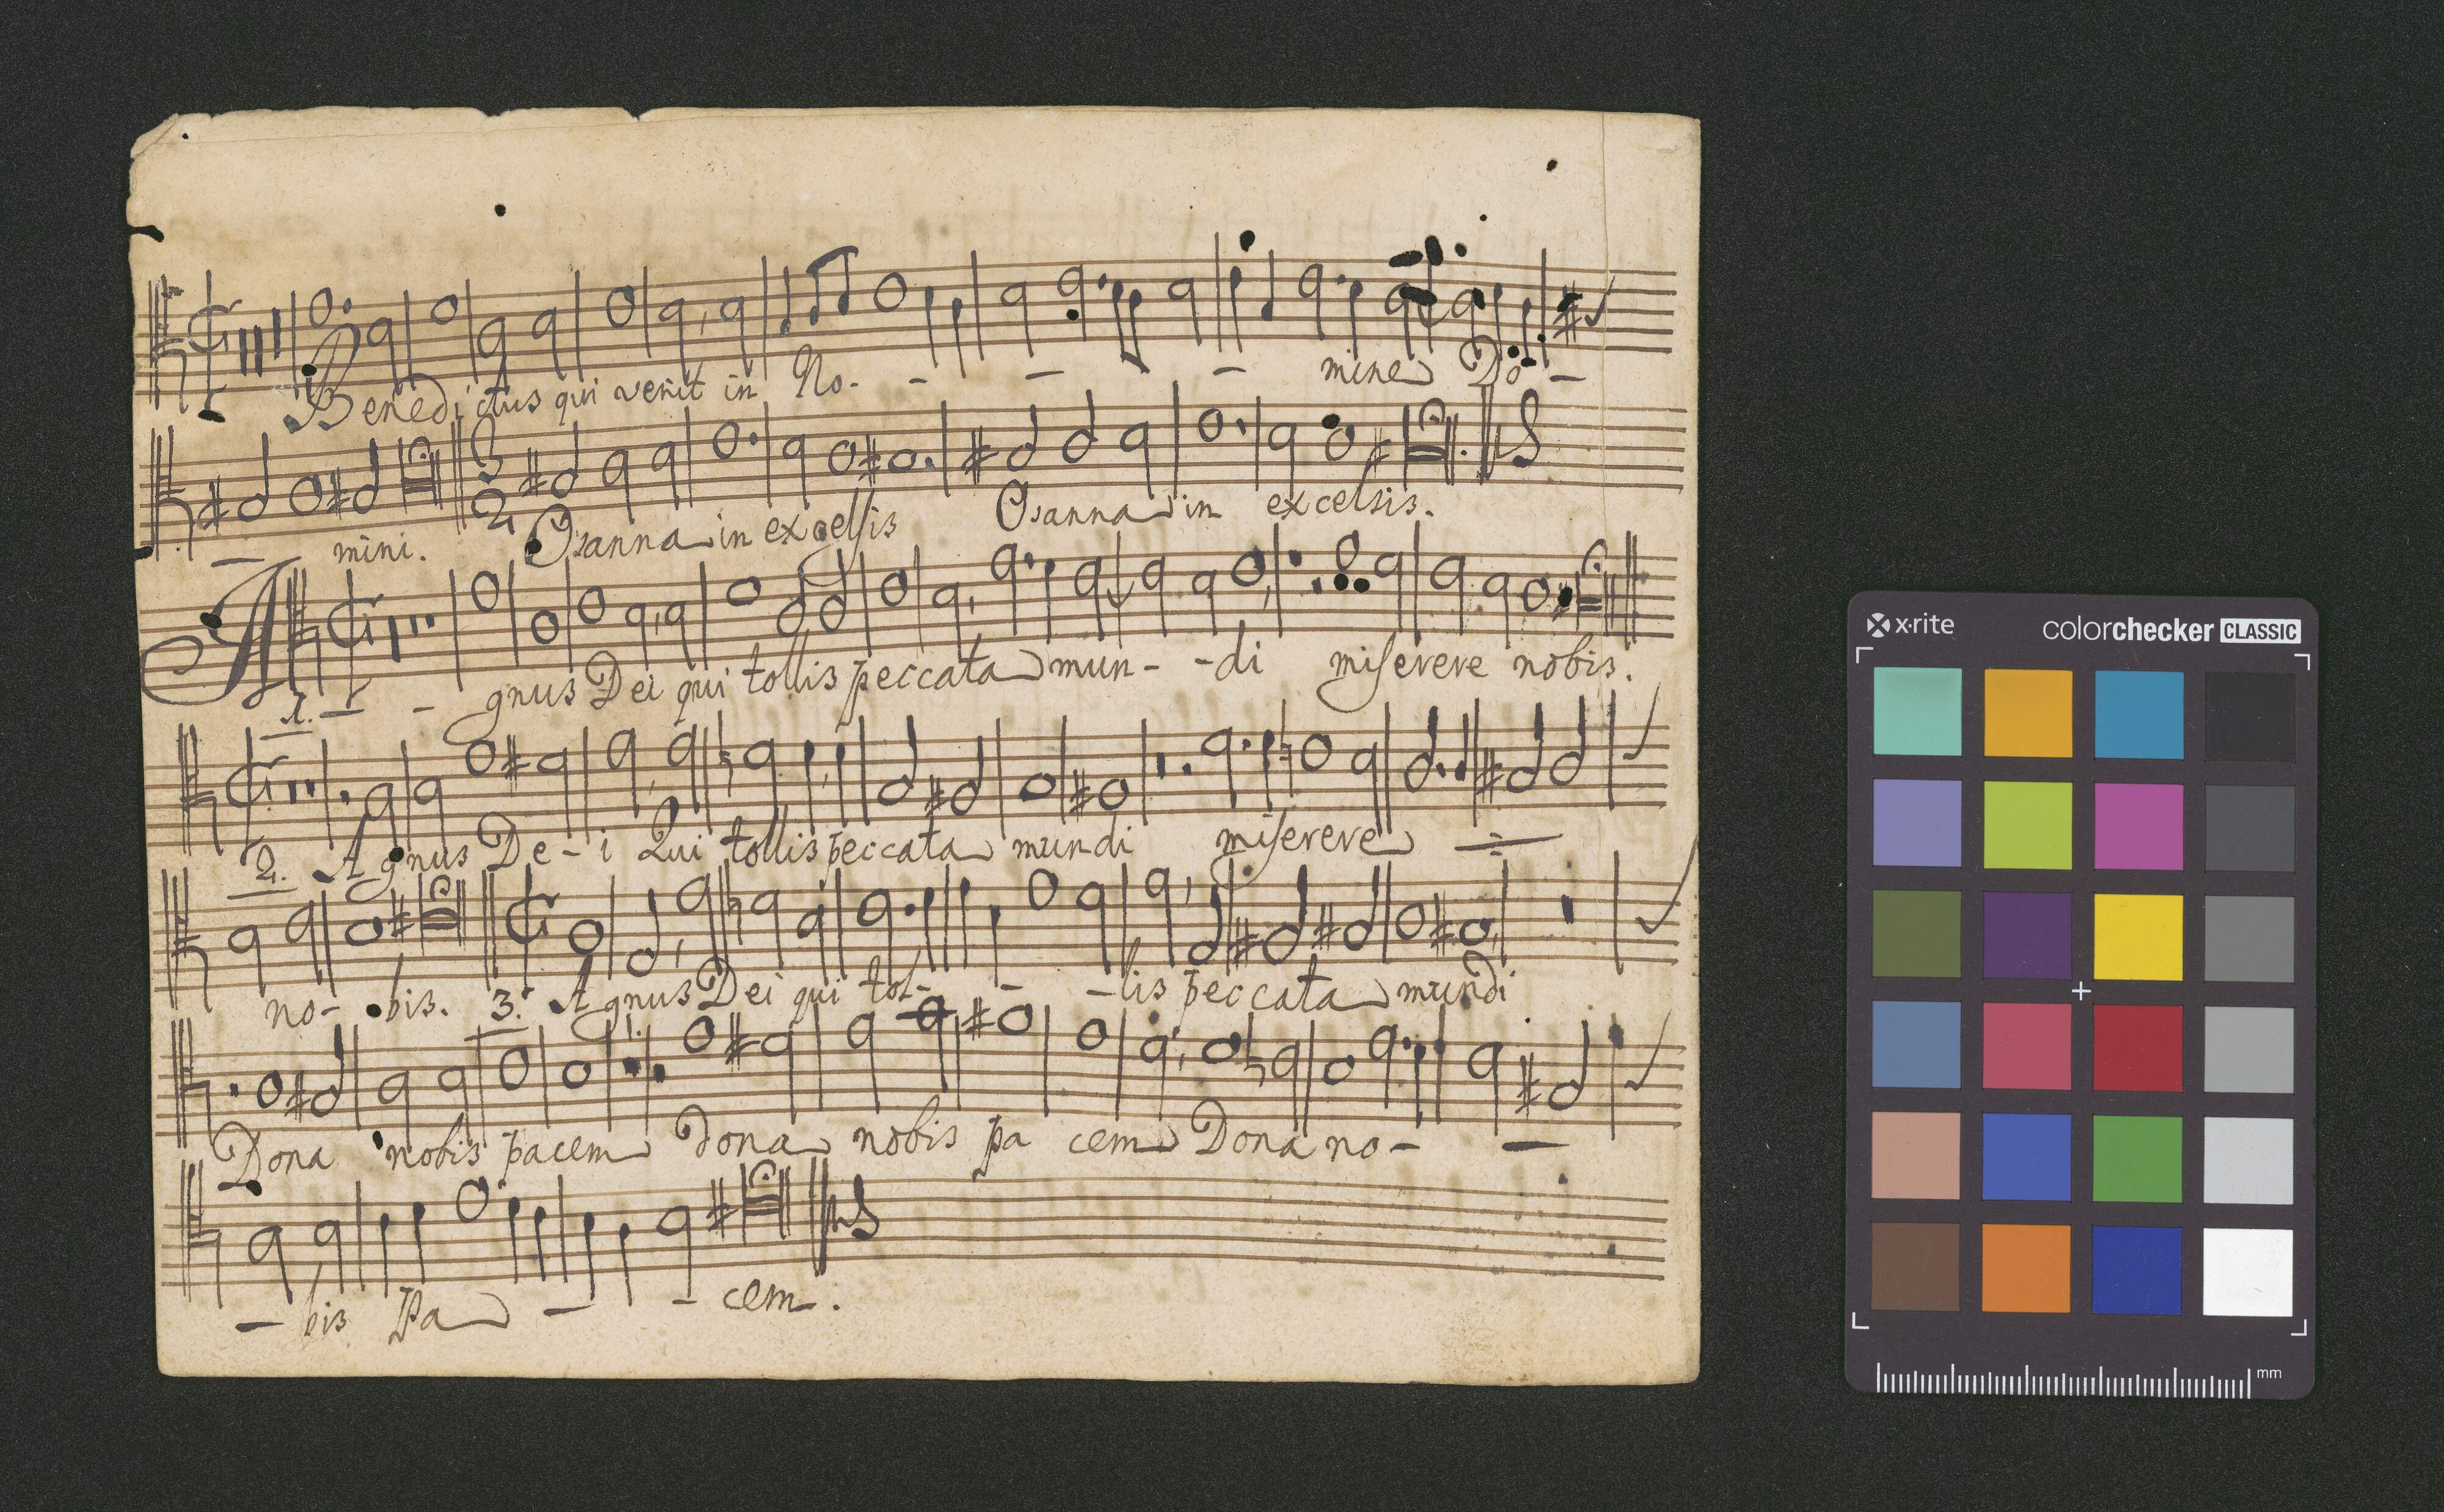 Benedictus qui venit in No- - - - mine Do -
- mini. 3 2 Osanna in excelsis Osanna in excelsis.
A - - gnus Dei qui tollis peccata mun- -di miserere nobis.
1.
2. Agnus De-i Qui tollis peccata mundi miserere
no- bis. 3. Agnus Dei qui tol- - -lis peccata mundi
Dona nobis pacem dona nobis pa cem Dona no- -
- bis Pa - - cem.
x·rite colorchecker CLASSIC
mm